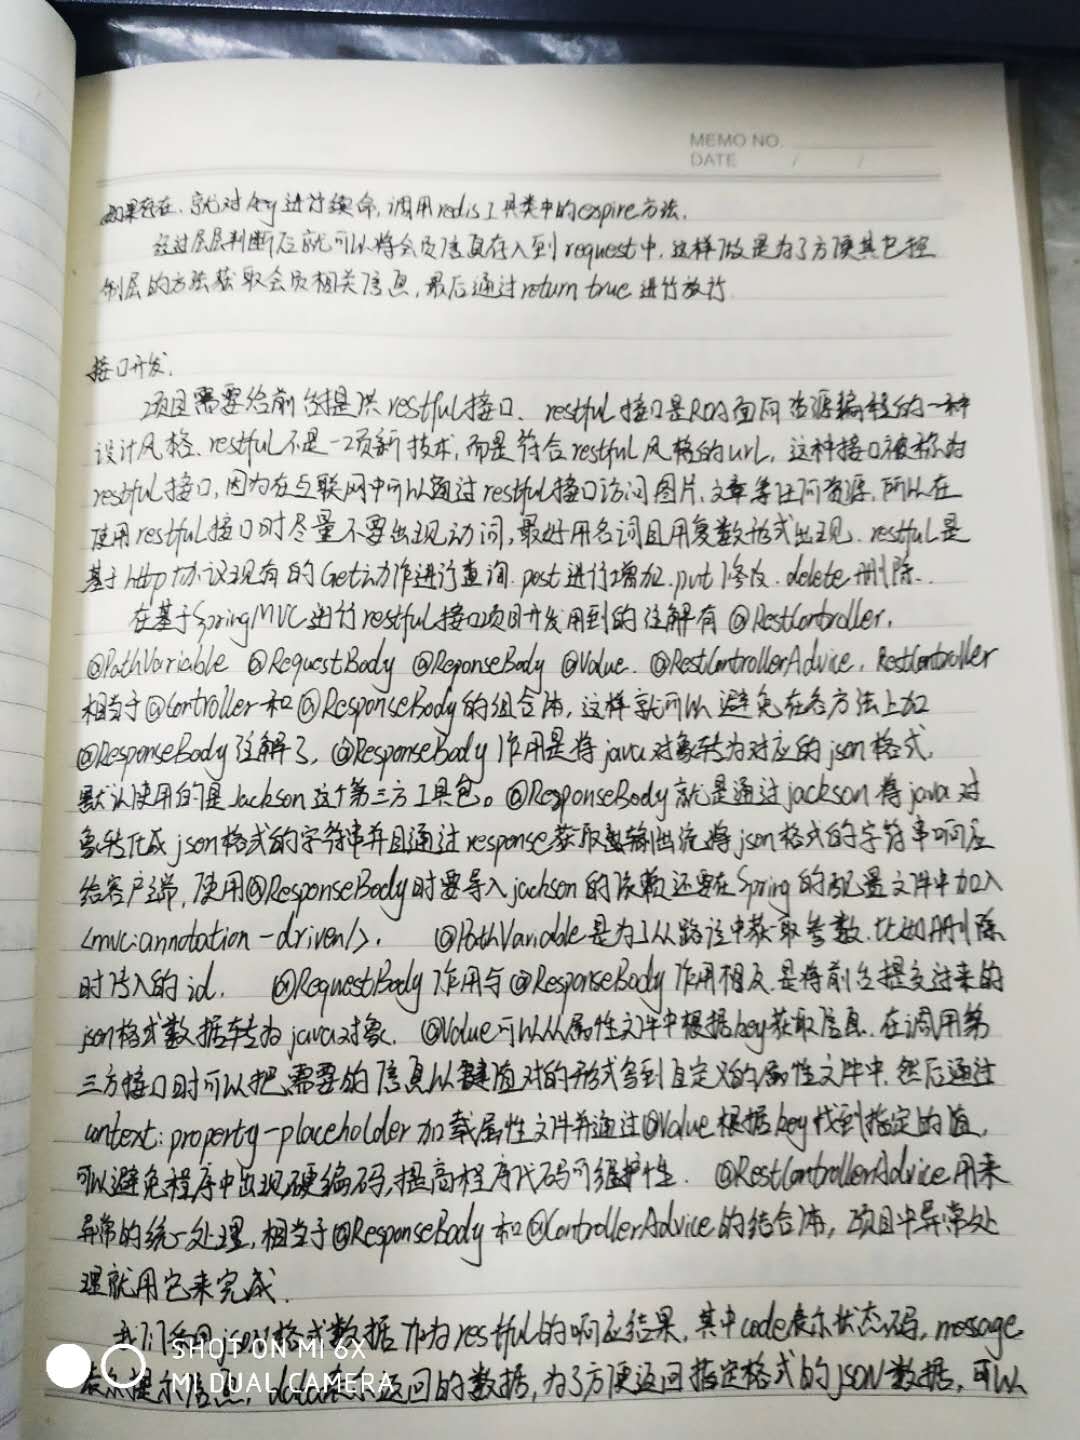 MEMO NO.
DATE / /
如果存在,就对key进行续命,调用redis工具类中的expire方法.
经过层层判断后就可以将会员信息存入到request中,这样做是为了方便其它控
制层的方法获取会员相关信息,最后通过return true进行放行
接口开发.
项目需要给前台提供restful接口、restful接口是ROA面向资源编程的一种
设计风格、restful不是一项新技术,而是符合restful风格的url,这种接口被称为
restful接口,因为在互联网中可以通过restful接口访问图片、文章等任何资源,所以在
使用restful接口时尽量不要出现动词,最好用名词且用复数形式出现.restful是
基于http协议现有的Get动作进行查询.post进行增加.put修改.delete删除.
在基于SpringMVC进行restful接口项目开发用到的注解有@RestController,
@PathVariable @RequestBody @ReponseBody @Value.@RestControllerAdvice,RestController
相当于@Controller和@ResponseBody的组合体,这样就可以避免在各方法上加
@ResponseBody注解了,@ResponseBody作用是将java对象转为对应的json格式,
默认使用的是Jackson这个第三方工具包。@ResponseBody就是通过jackson将java对
象转化成json格式的字符串并且通过response获取输出流将json格式的字符串响应
给客户端,使用@ResponseBody时要导入jackson的依赖还要在Spring的配置文件中加入
<mvc:annotation-driven/>. @PathVariable是为了从路径中获取参数.比如删除
时传入的id. @RequestBody作用与@ResponseBody作用相反.是将前台提交过来的
json格式数据转为java对象. @Value可以从属性文件中根据key获取信息.在调用第
三方接口时可以把需要的信息以键值对的形式写到自定义的属性文件中.然后通过
context:property-placeholder加载属性文件并通过@Value根据key找到指定的值,
可以避免程序中出现硬编码,提高程序代码可维护性. @RestControllerAdvice用来
异常的统一处理,相当于@ResponseBody和@ControllerAdvice的结合体,项目中异常处
理就用它来完成.
我们采用json格式数据作为restful的响应结果,其中code表示状态码,message
表示提示信息,data表示返回的数据,为了方便返回指定格式的json数据,可以
SHOT ON MI 6X
MI DUAL CAMERA